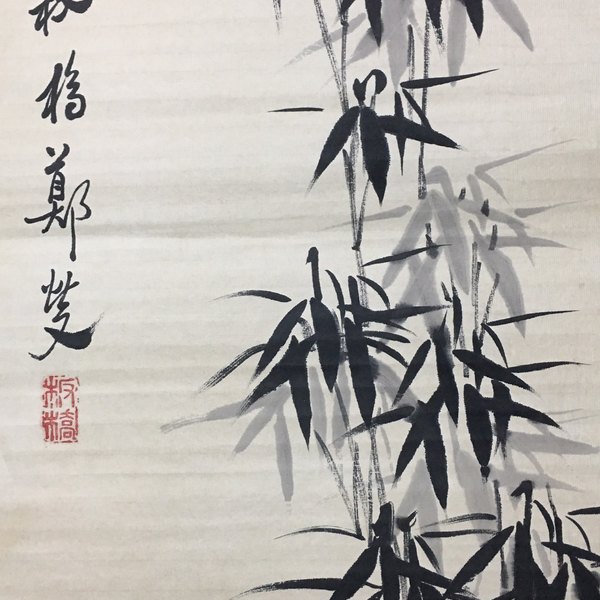 板橋鄭燮
板橋